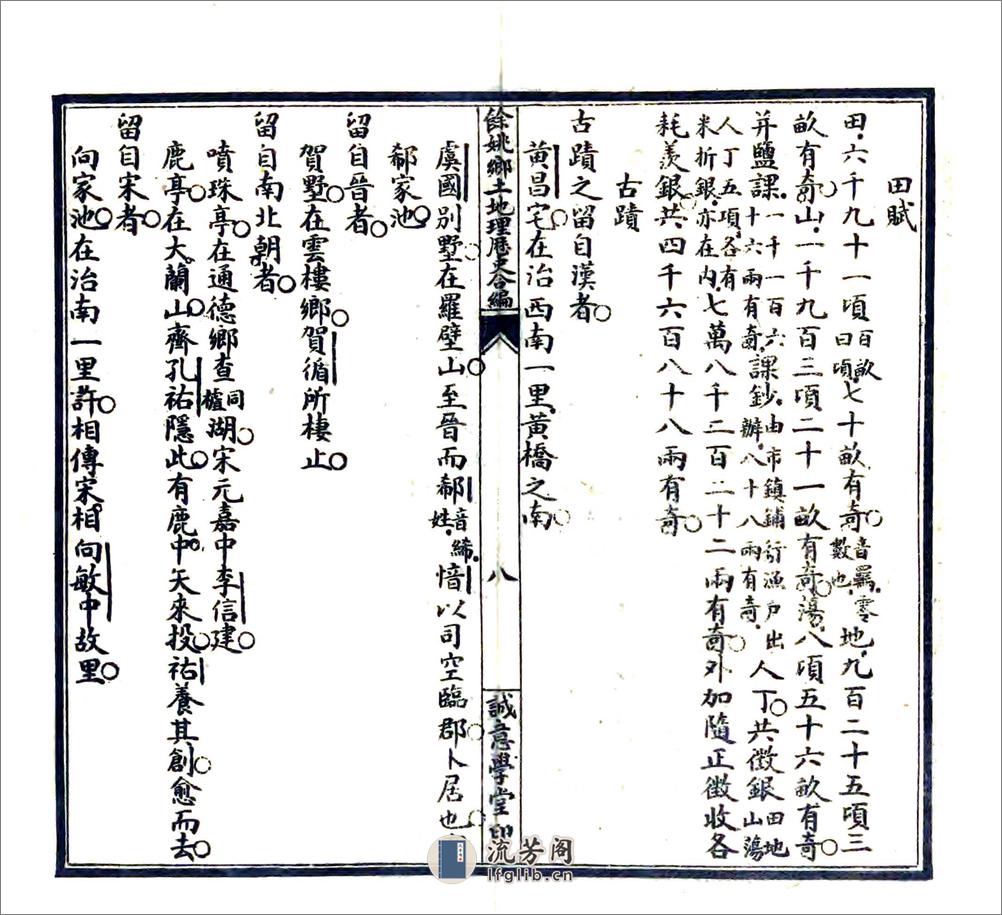 田賦
田六千九十一頃百畝曰頃七十畝有奇音羈零數也地九百二十五頃三
畝有奇山一千九百三項二十一畝有奇蕩八項五十六畝有奇
并鹽課一千一百六十六兩有奇課鈔由市鎮鋪行漁戶出辦八十八兩有奇人丁共徵銀田地山蕩
人丁五項各有米折銀亦在內七萬八千二百二十二兩有奇外加隨正徵收各
耗羨銀共四千六百八十八兩有奇
古蹟
古蹟之留自漢者
黃昌宅在治西南一里黃橋之南
餘姚鄉土地理歷史合編
八
誠意學堂印
虞國別墅在羅壁山至晉而郗音絺姓愔以司空臨郡卜居也
郗家池
留自晉者
賀墅在雲樓鄉賀循所棲止
留自南北朝者
噴珠亭在通德鄉查同櫨湖宋元嘉中李信建
鹿亭在大蘭山齊孔祐隱此有鹿中矢來投祐養其創愈而去
留自宋者
向家池在治南一里許相傳宋相向敏中故里
流芳阁
lfglib.cn